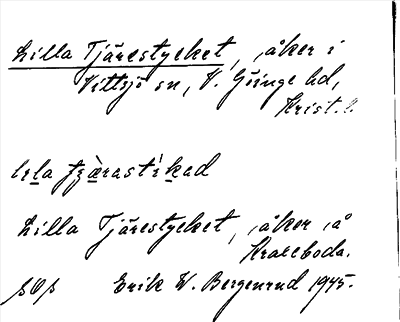 Lilla Tjärestycket, åker i
Vittsjö sn, V. Göinge hd,
Krist. l.
lịla tjæ̀rastikad
Lilla Tjärestycket, åker å
Krareboda.
Erik W. Bergenrud 1945.